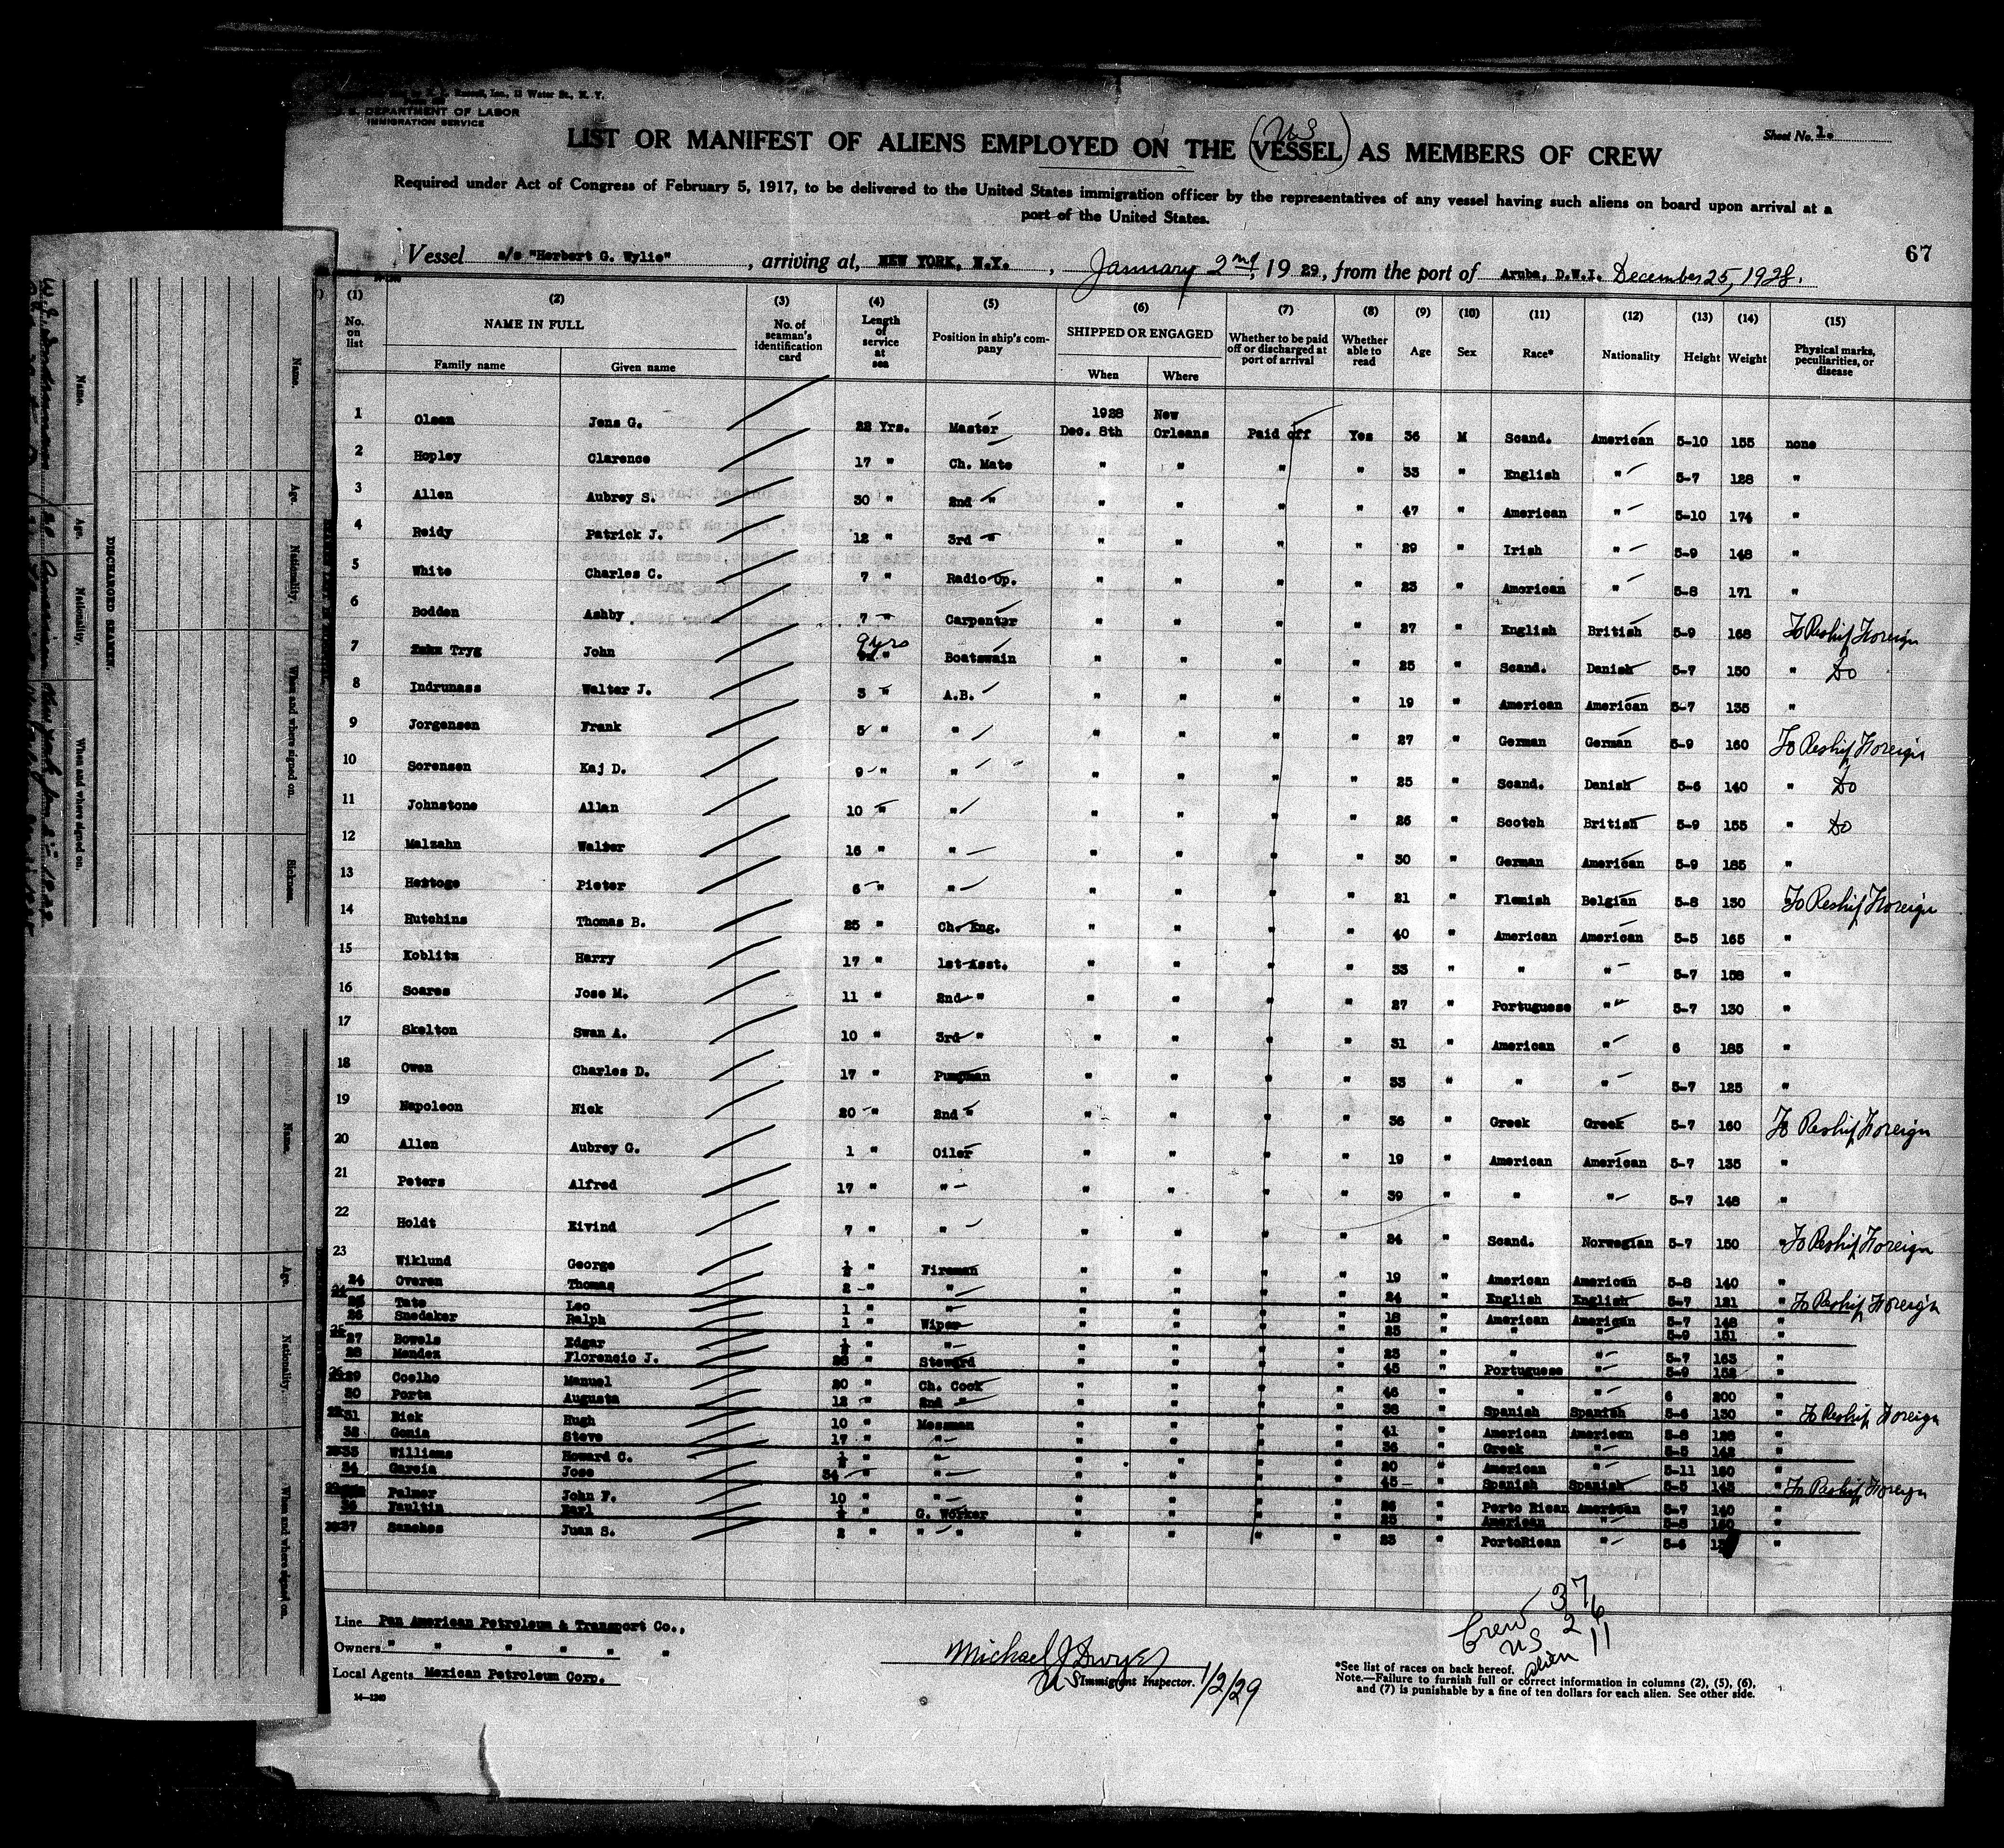 Russel, Inc., 15 Water St., N. Y.
U. S. DEPARTMENT OF LABOR
IMMIGRATION SERVICE
Sheet No. 1.
LIST OR MANIFEST OF ALIENS EMPLOYED ON THE (VESSEL) AS MEMBERS OF CREW
US
Required under Act of Congress of February 5, 1917, to be delivered to the United States immigration officer by the representatives of any vessel having such aliens on board upon arrival at a
port of the United States.
67
Vessel s/s "Herbert G. Wylie", arriving at, NEW YORK, N.Y., January 2nd, 1929, from the port of Aruba, D.W.I. December 25, 1928.
(1) No. on list (2) NAME IN FULL Family name Given name (3) No. of seaman's identification card (4) Length of service at sea (5) Position in ship's company (6) SHIPPED OR ENGAGED When Where (7) Whether to be paid off or discharged at port of arrival (8) Whether able to read (9) Age (10) Sex (11) Race* (12) Nationality (13) Height (14) Weight (15) Physical marks, peculiarities, or disease
1 Olsen Jens G. 22 Yrs. Master 1928 Dec. 8th New Orleans Paid off Yes 36 M Scand. American 5-10 155 none
2 Hopley Clarence 17 " Ch. Mate " " " " 33 " English " 5-7 128 "
3 Allen Aubrey S. 30 " 2nd " " " " " 47 " American " 5-10 174 "
4 Reidy Patrick J. 12 " 3rd " " " " " 29 " Irish " 5-9 148 "
5 White Charles C. 7 " Radio Op. " " " " 23 " American " 5-8 171 "
6 Bodden Ashby 7 " Carpenter " " " " 27 " English British 5-9 168 To Reship Foreign
7 Tryg John 9 yrs " Boatswain " " " " 25 " Scand. Danish 5-7 150 " Do
8 Indrunass Walter J. 3 " A.B. " " " " 19 " American American 5-7 135 "
9 Jorgensen Frank 5 " " " " " " 27 " German German 5-9 160 To Reship Foreign
10 Sorensen Kaj D. 9 " " " " " " 25 " Scand. Danish 5-6 140 " Do
11 Johnstone Allan 10 " " " " " " 26 " Scotch British 5-9 155 " Do
12 Malzahn Walter 16 " " " " " " 30 " German American 5-9 185 "
13 Hertoge Pieter 6 " " " " " " 21 " Flemish Belgian 5-8 130 To Reship Foreign
14 Hutchins Thomas B. 25 " Ch. Eng. " " " " 40 " American American 5-5 165 "
15 Koblitz Harry 17 " 1st Asst. " " " " 33 " " " 5-7 158 "
16 Soares Jose M. 11 " 2nd " " " " " 27 " Portuguese " 5-7 130 "
17 Skelton Swan A. 10 " 3rd " " " " " 31 " American " 6 185 "
18 Owen Charles D. 17 " Pumpman " " " " 33 " " " 5-7 125 "
19 Napoleon Nick 20 " 2nd " " " " " 36 " Greek Greek 5-7 160 To Reship Foreign
20 Allen Aubrey G. 1 " Oiler " " " " 19 " American American 5-7 135 "
21 Peters Alfred 17 " " " " " " 39 " " " 5-7 148 "
22 Holdt Eivind 7 " " " " " " 24 " Scand. Norwegian 5-7 150 " To Reship Foreign
23 Wiklund George ½ " Fireman " " " " 19 " American American 5-8 140 "
24 Overen Thomas 2 " " " " " " 24 " English English 5-7 121 " To Reship Foreign
25 Tate Leo 1 " " " " " " 18 " American American 5-7 148 "
26 Snedaker Ralph 1 " Wiper " " " " 25 " " " 5-9 151 "
27 Bowels Edgar ½ " " " " " " 23 " " " 5-7 163 "
28 Mendez Florencio J. 28 " Steward " " " " 45 " Portuguese " 5-9 152 "
29 Coelho Manuel 20 " Ch. Cook " " " " 46 " " " 6 200 "
30 Porta Augusta 12 " 2nd " " " " " 38 " Spanish Spanish 5-6 130 " To Reship Foreign
31 Bick Hugh 10 " Messman " " " " 41 " American American 5-8 128 "
32 Gonia Steve 17 " " " " " " 36 " Greek " 5-5 142 "
33 Williams Howard C. ½ " " " " " " 20 " American " 5-11 160 "
34 Garcia Jose 34 " " " " " " 45 " Spanish Spanish 5-5 145 " To Reship Foreign
Palmer John F. 10 " " " " " " 26 " Porto Rican American 5-7 140 "
36 Faultin Earl ½ " G. Worker " " " " 25 " American " 5-8 160 "
37 Sanches Juan S. 2 " " " " " " " 23 " PortoRican " 5-6 "
Crew 37
US 26
alien 11
Line Pan American Petroleum & Transport Co.,
Owners " " " " " "
Local Agents Mexican Petroleum Corp.
14—1240
Michael J Dwyer
US Immigrant Inspector. 1/2/29
*See list of races on back hereof.
Note.—Failure to furnish full or correct information in columns (2), (5), (6),
and (7) is punishable by a fine of ten dollars for each alien. See other side.
DISCHARGED SEAMEN.
Name. Age. Nationality. When and where signed on.
Name. Age. Nationality. When and where signed on. Sickness.
Name. Age. Nationality. When and where signed on.